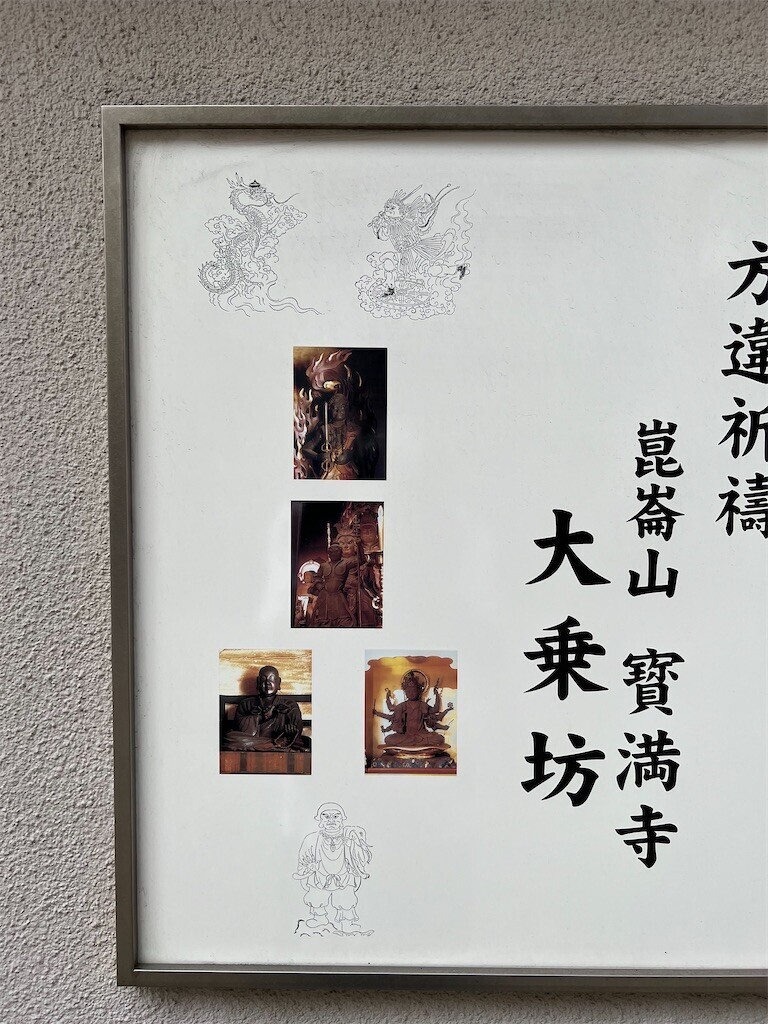 方違祈禱
崑崙山 寳満寺
大乗坊